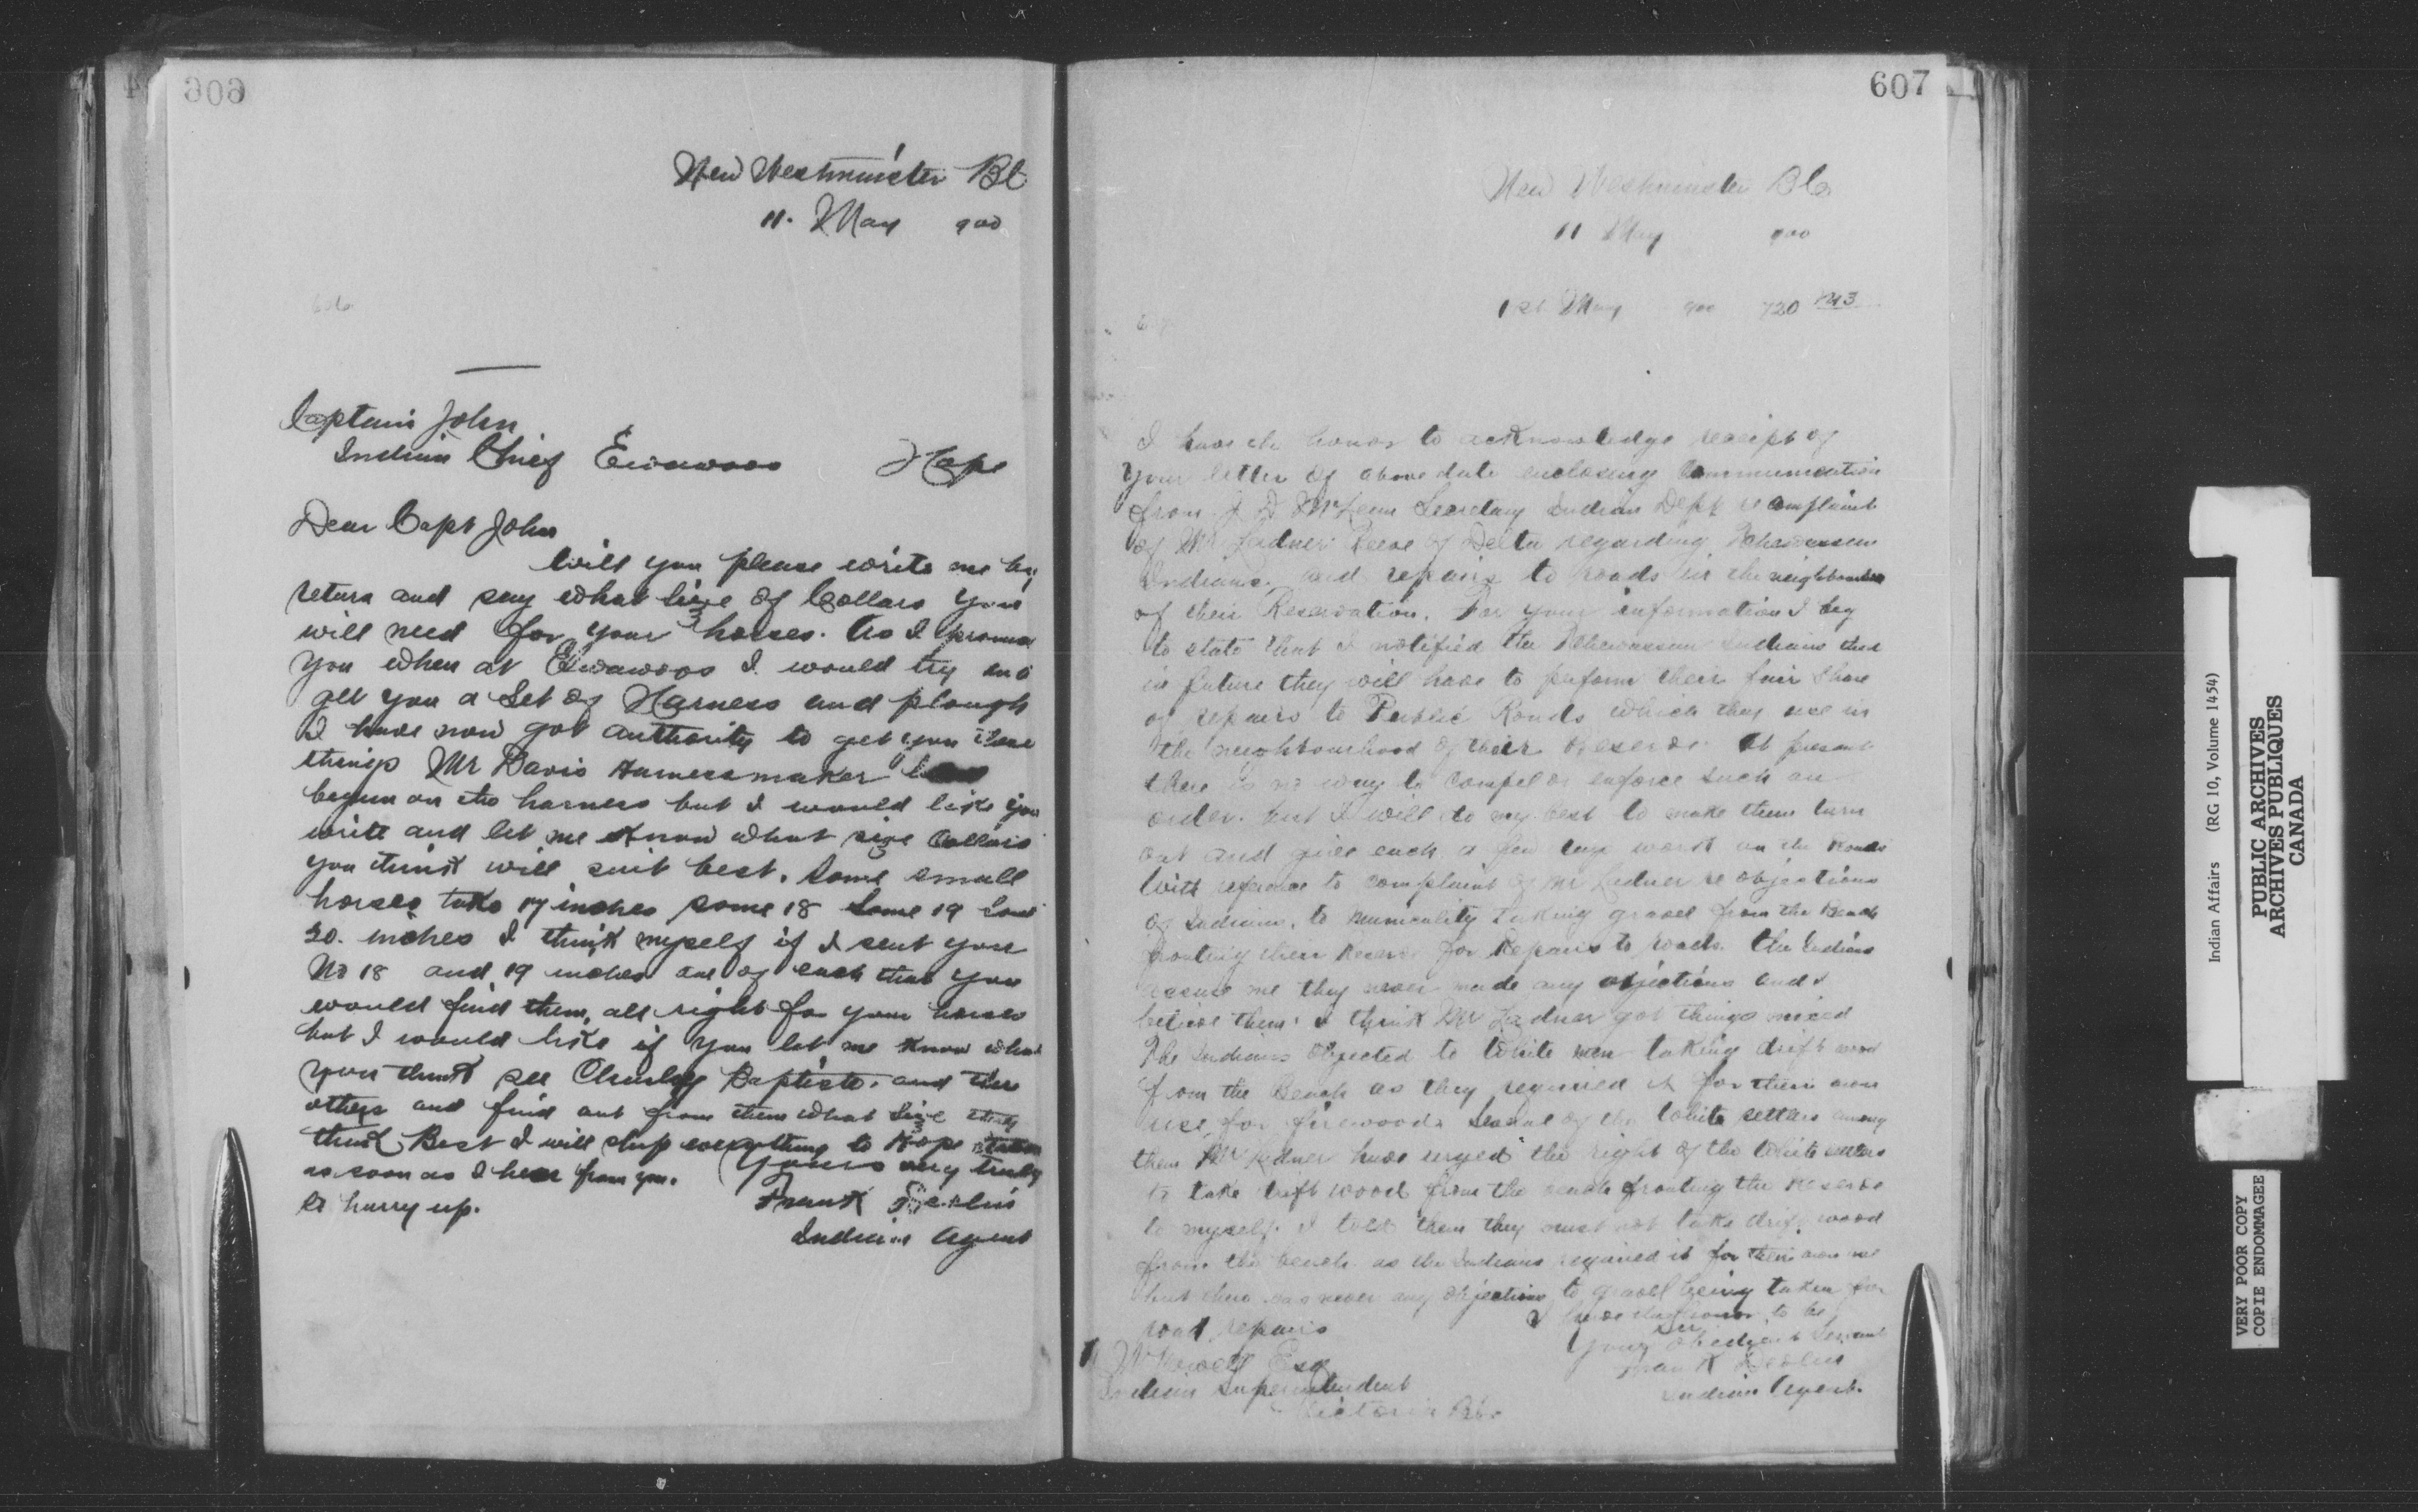 606
New Westminster BC
11. May 900
606
Captain John
Indian Chief Ewawoos Hope
Dear Capt John
Will you please write me by
return and say what size of Collars you
will need for your horses. As I promised
you when at Ewawoos I would try and
get you a Set of Harness and plough
I have now got authority to get you these
things Mr Davis Harnessmaker has
begun on the harness but I would like you
write and let me know what size Collars
you think will suit best. Some small
horses take 17 inches some 18 Some 19 Some
20. inches I think myself if I sent you
No 18 and 19 inches one of each that you
would find them all right for your horses
but I would like if you let me know what
you think see Charley Baptiste. and the
others and find out from them what size they
think Best I will ship everything to Hope Station
as soon as I hear from you. Yours very truly
so hurry up. Frank Devlin
Indian Agent
607
New Westminster BC
11 May 900
1st May 900 720
I have the honor to acknowledge receipt of
your letter of above date enclosing Communication
from J D McLean Secretary Indian Dept re complaint
of Mr Ladner Reeve of Delta regarding Tchewassen
Indians. and repairs to roads in the neighbourhood
of their Reservation. For your information I beg
to state that I notified the Tchewassen Indians that
in future they will have to perform their fair share
of repairs to Public Roads which they use in
the neighbourhood of their Reserve. At present
there is no way to compel or enforce such an
order. but I will do my best to make them turn
out and give each a few days work on the Roads
With reference to complaint of Mr Ladner re objections
of Indians. to Municality taking gravel from the Beach
fronting their Reserve for Repairs to roads. the Indians
assure me they never made any objections and I
believe them. I think Mr Ladner got things mixed
The Indians objected to White men taking drift wood
from the Beach as they required it for their own
use for firewood. Several of the White settlers among
them Mr Ladner have urged the right of the White settlers
to take drift wood from the beach fronting the Reserve
to myself. I told them they must not take drift wood
from the beach as the Indians required it for their own use
but there was never any objections to gravel being taken for
road repairs I have the honor to be
Sir
Your obedient Servant
Frank Devlin
Indian Agent.
Vowell Esq
Indian Superintendent
Victoria BC.
Indian Affairs (RG 10, Volume 1454)
PUBLIC ARCHIVES
ARCHIVES PUBLIQUES
CANADA
VERY POOR COPY
COPIE ENDOMMAGEE